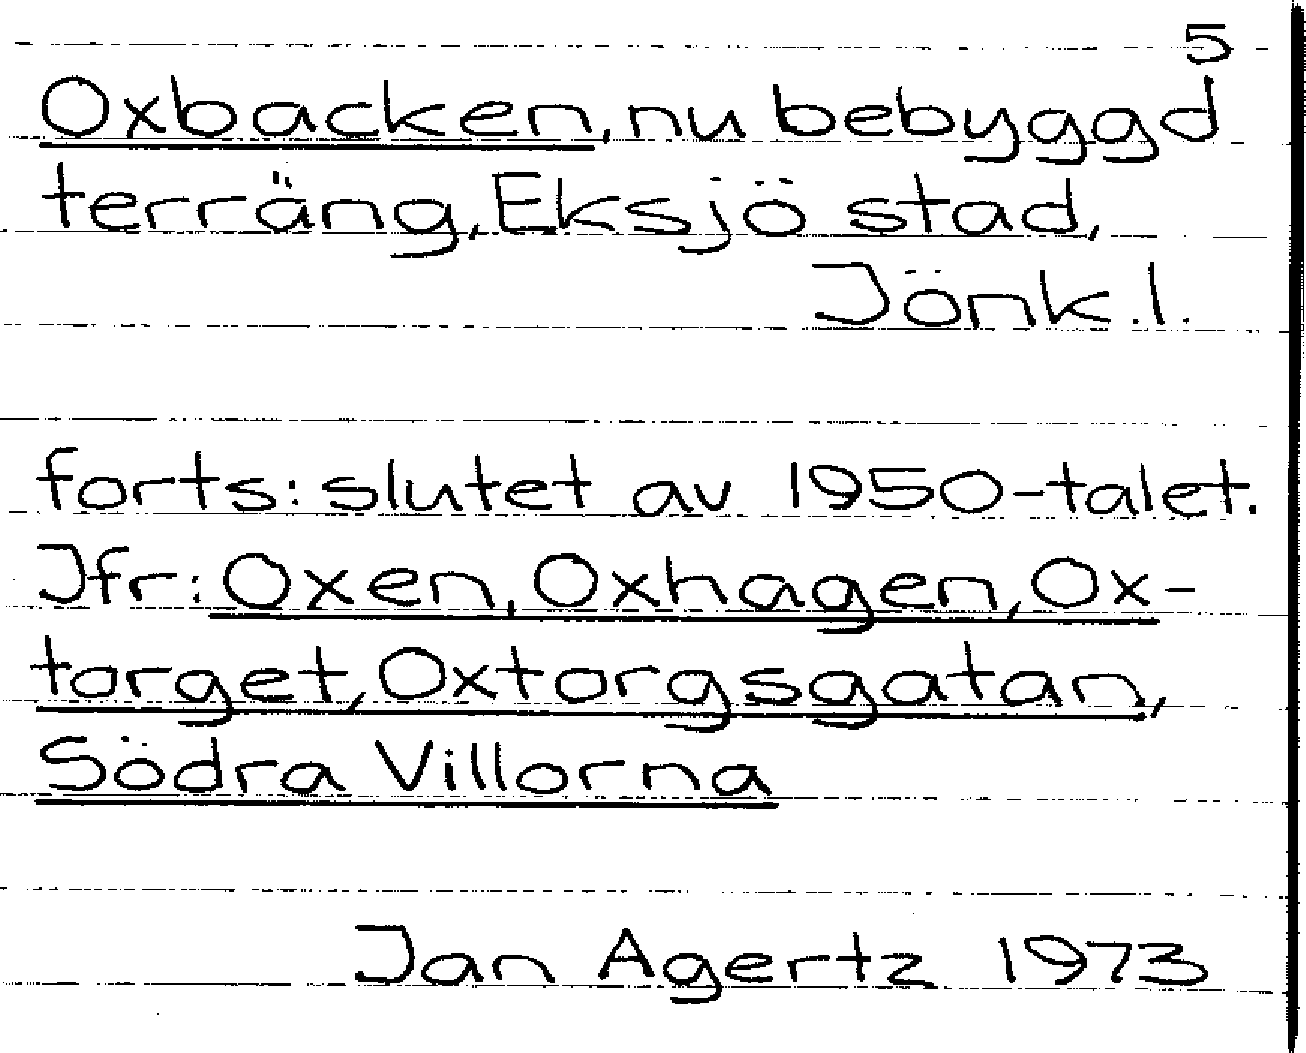 5
Oxbacken, nu bebyggd
terräng, Eksjö stad,
Jönk.l.
forts: slutet av 1950-talet.
Jfr: Oxen, Oxhagen, Ox-
torget, Oxtorgsgatan,
Södra Villorna
Jan Agertz 1973